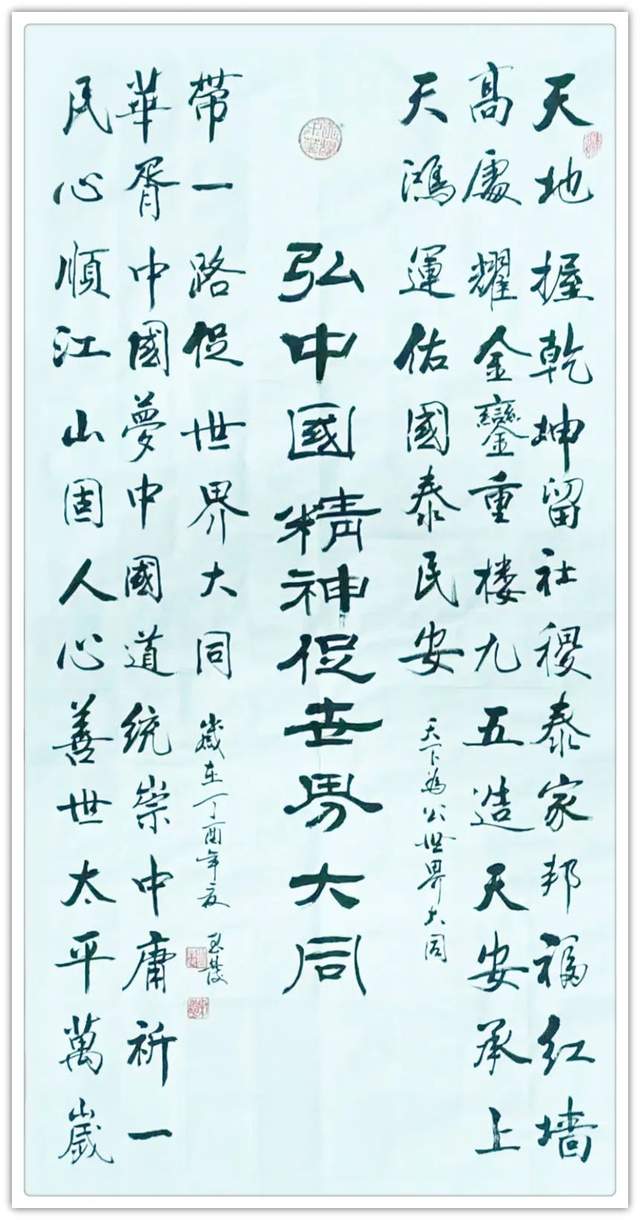 天地握乾坤留社稷泰家邦福红墙
高處耀金鑾重楼九五造天安承上
天鴻運佑國泰民安
天下為公世界大同
弘中國精神促世界大同
民心順江山固人心善世太平萬歲
華胥中國夢中國道統崇中庸祈一
帶一路促世界大同
歲在丁酉年夏